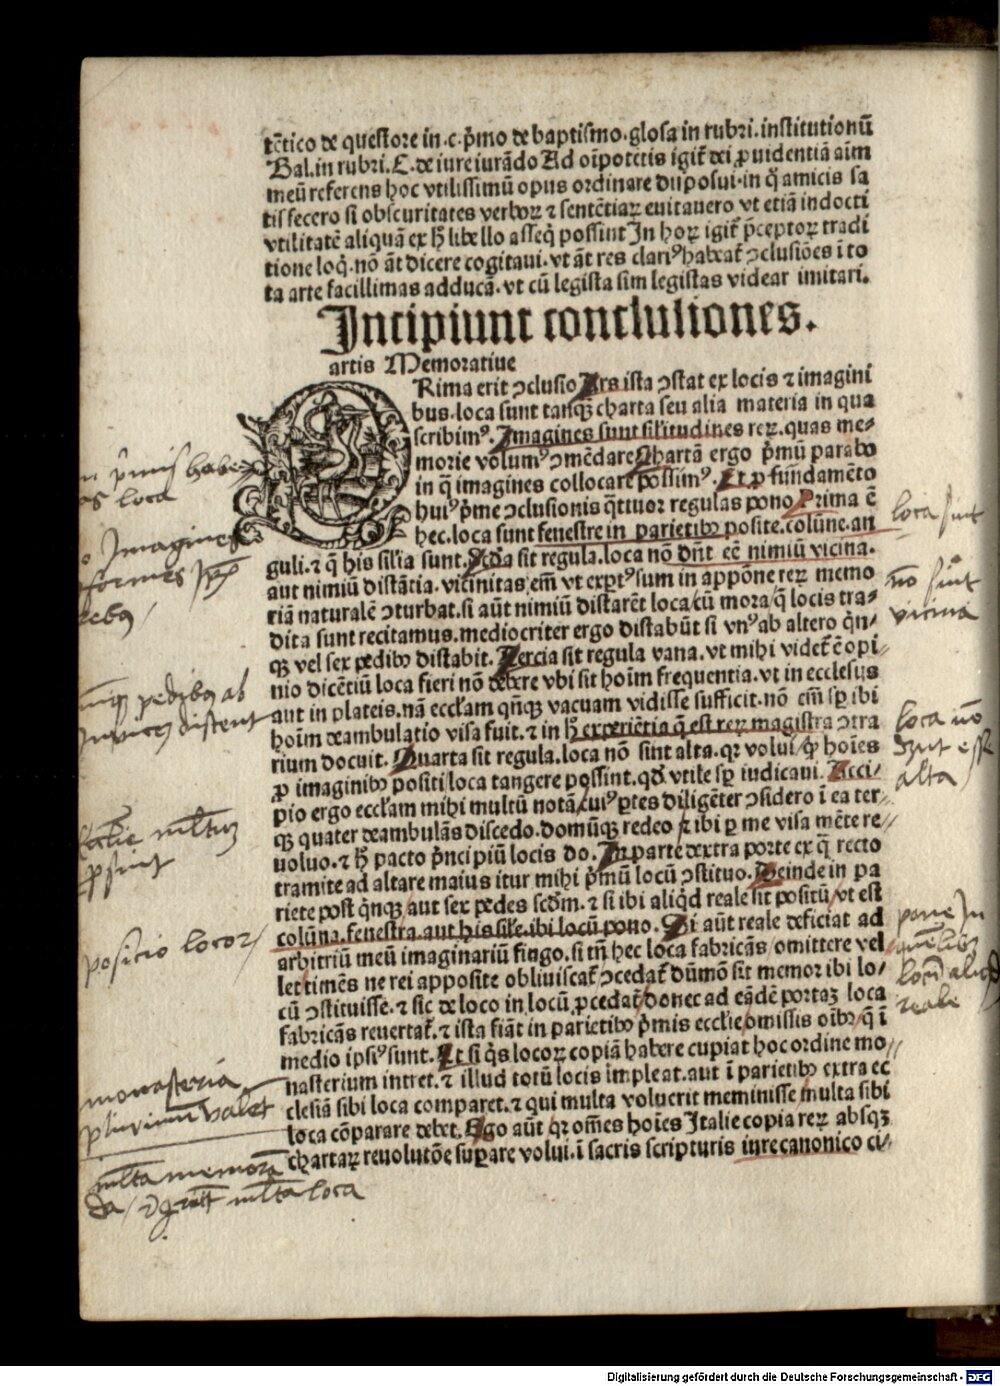 tētico de questore in .c. p̄mo de baptismo. glosa in rubri. institutionū
Bal. in rubri. C. de iure iurādo Ad oīpotētis igit̄ dei ꝓuidentiā aīm
meū referens hoc vtilissimū opus ordinare disposui. in q̄ amicis sa
tis fecero si obscuritates verboꝝ ⁊ sentētiaꝝ euitauero vt etiā indocti
vtilitatē aliquā ex h̄ libello asseq̄ possint In hoꝝ igit̄ p̄ceptoꝝ tradi
tione loq̄. nō āt dicere cogitaui. vt āt res clariꝰ habeāt ꝯclusiōes ī to
ta arte facillimas adducā. vt cū legista sim legistas videar imitari.
Incipiunt conclusiones.
artis Memoratiue
PRima erit ꝯclusio Ars ista ꝯstat ex locis ⁊ imagini
bus. loca sunt tanqꝫ charta seu alia materia in qua
scribimꝰ. Imagines sunt sil'itudines reꝝ. quas me-
morie volumꝰ ꝯmēdare Chartā ergo p̄mū parabo
in q̄ imagines collocare possimꝰ. Et ꝓ fundamēto
huiꝰ p̄me ꝯclusionis q̄ttuor regulas pono Prima ē
hec. loca sunt fenestre in parietibꝰ posite. colūne. an
guli. ⁊ q̄ his sil'ia sunt. Scd'a sit regula. loca nō dn̄t eē nimiū vicina.
aut nimiū distātia. vicinitas em̄ vt exptꝰ sum in appōne reꝝ memo
riā naturalē ꝯturbat. si aūt nimiū distarēt loca / cū mora / q̄ locis tra-
dita sunt recitamus. mediocriter ergo distabūt si vnꝰ ab altero q̄n-
qꝫ vel sex pedibꝰ distabit. Tercia sit regula vana. vt mihi videt̄ ē opi-
nio dicētiū loca fieri nō debere vbi sit hoīm frequentia. vt in ecclesijs
aut in plateis. nā eccl'am qn̄qꝫ vacuam vidisse sufficit. nō em̄ sp̄ ibi
hoīm deambulatio visa fuit. ⁊ in h̄ experiētia q̄ est reꝝ magistra ꝯtra
rium docuit. Quarta sit regula. loca nō sint alta. qꝛ volui / ꝙ hoīes
ꝓ imaginibꝰ positi loca tangere possint. qd̄ vtile sp̄ iudicaui. Acci-
pio ergo eccl'am mihi multū notā / cuiꝰ ptes diligēter ꝯsidero ī ea ter-
qꝫ quater deambulās discedo. domūqꝫ redeo ⁊ ibi ꝑ me visa mēte re-
uoluo. ⁊ h̄ pacto p̄ncipiū locis do. In parte dextra porte ex q̄ recto
tramite ad altare maius itur mihi p̄mū locū ꝯstituo. Deinde in pa
riete post q̄nqꝫ / aut sex pedes scd̄m. ⁊ si ibi aliq̄d reale sit positū / vt est
colūna. fenestra. aut his sil'e. ibi locū pono. Si aūt reale deficiat ad
arbitriū meū imaginariū fingo. si tn̄ hec loca fabricās / omittere vel
let / timēs ne rei apposite obliuiscat̄ ꝯcedat̄ dūmō sit memor ibi lo-
cū ꝯstituisse. ⁊ sic de loco in locū ꝓcedat̄ / donec ad eādē portaꝫ loca
fabricās reuertat̄. ⁊ ista fiāt in parietibꝰ p̄mis eccl'ie / omissis oībꝰ / q̄ ī
medio ipsiꝰ sunt. Et si q̄s locoꝝ copiā habere cupiat hoc ordine mo-
nasterium intret. ⁊ illud totū locis impleat. aut ī parietibꝰ extra ec
clesiā sibi loca comparet. ⁊ qui multa voluerit meminisse / multa sibi
loca cōparare debet. Ego aūt qꝛ om̄es hoīes Italie copia reꝝ absqꝫ
chartaꝝ reuolutōe supare volui. ī sacris scripturis iure canonico ci-
n p̄mis habe
es loca
Imagines
formes
rebꝰ
pedibꝰ ab
inuicē distent
Ecclesie
ꝑsint
posicio locoꝝ
monasteria
plurimū valēt
ml'ta memorā
da / ml'ta loca
loca sint
nō sint
vicina
loca nō
alta
pone In
quolibꝫ
locū aliqd
reale
Digitalisierung gefördert durch die Deutsche Forschungsgemeinschaft - DFG